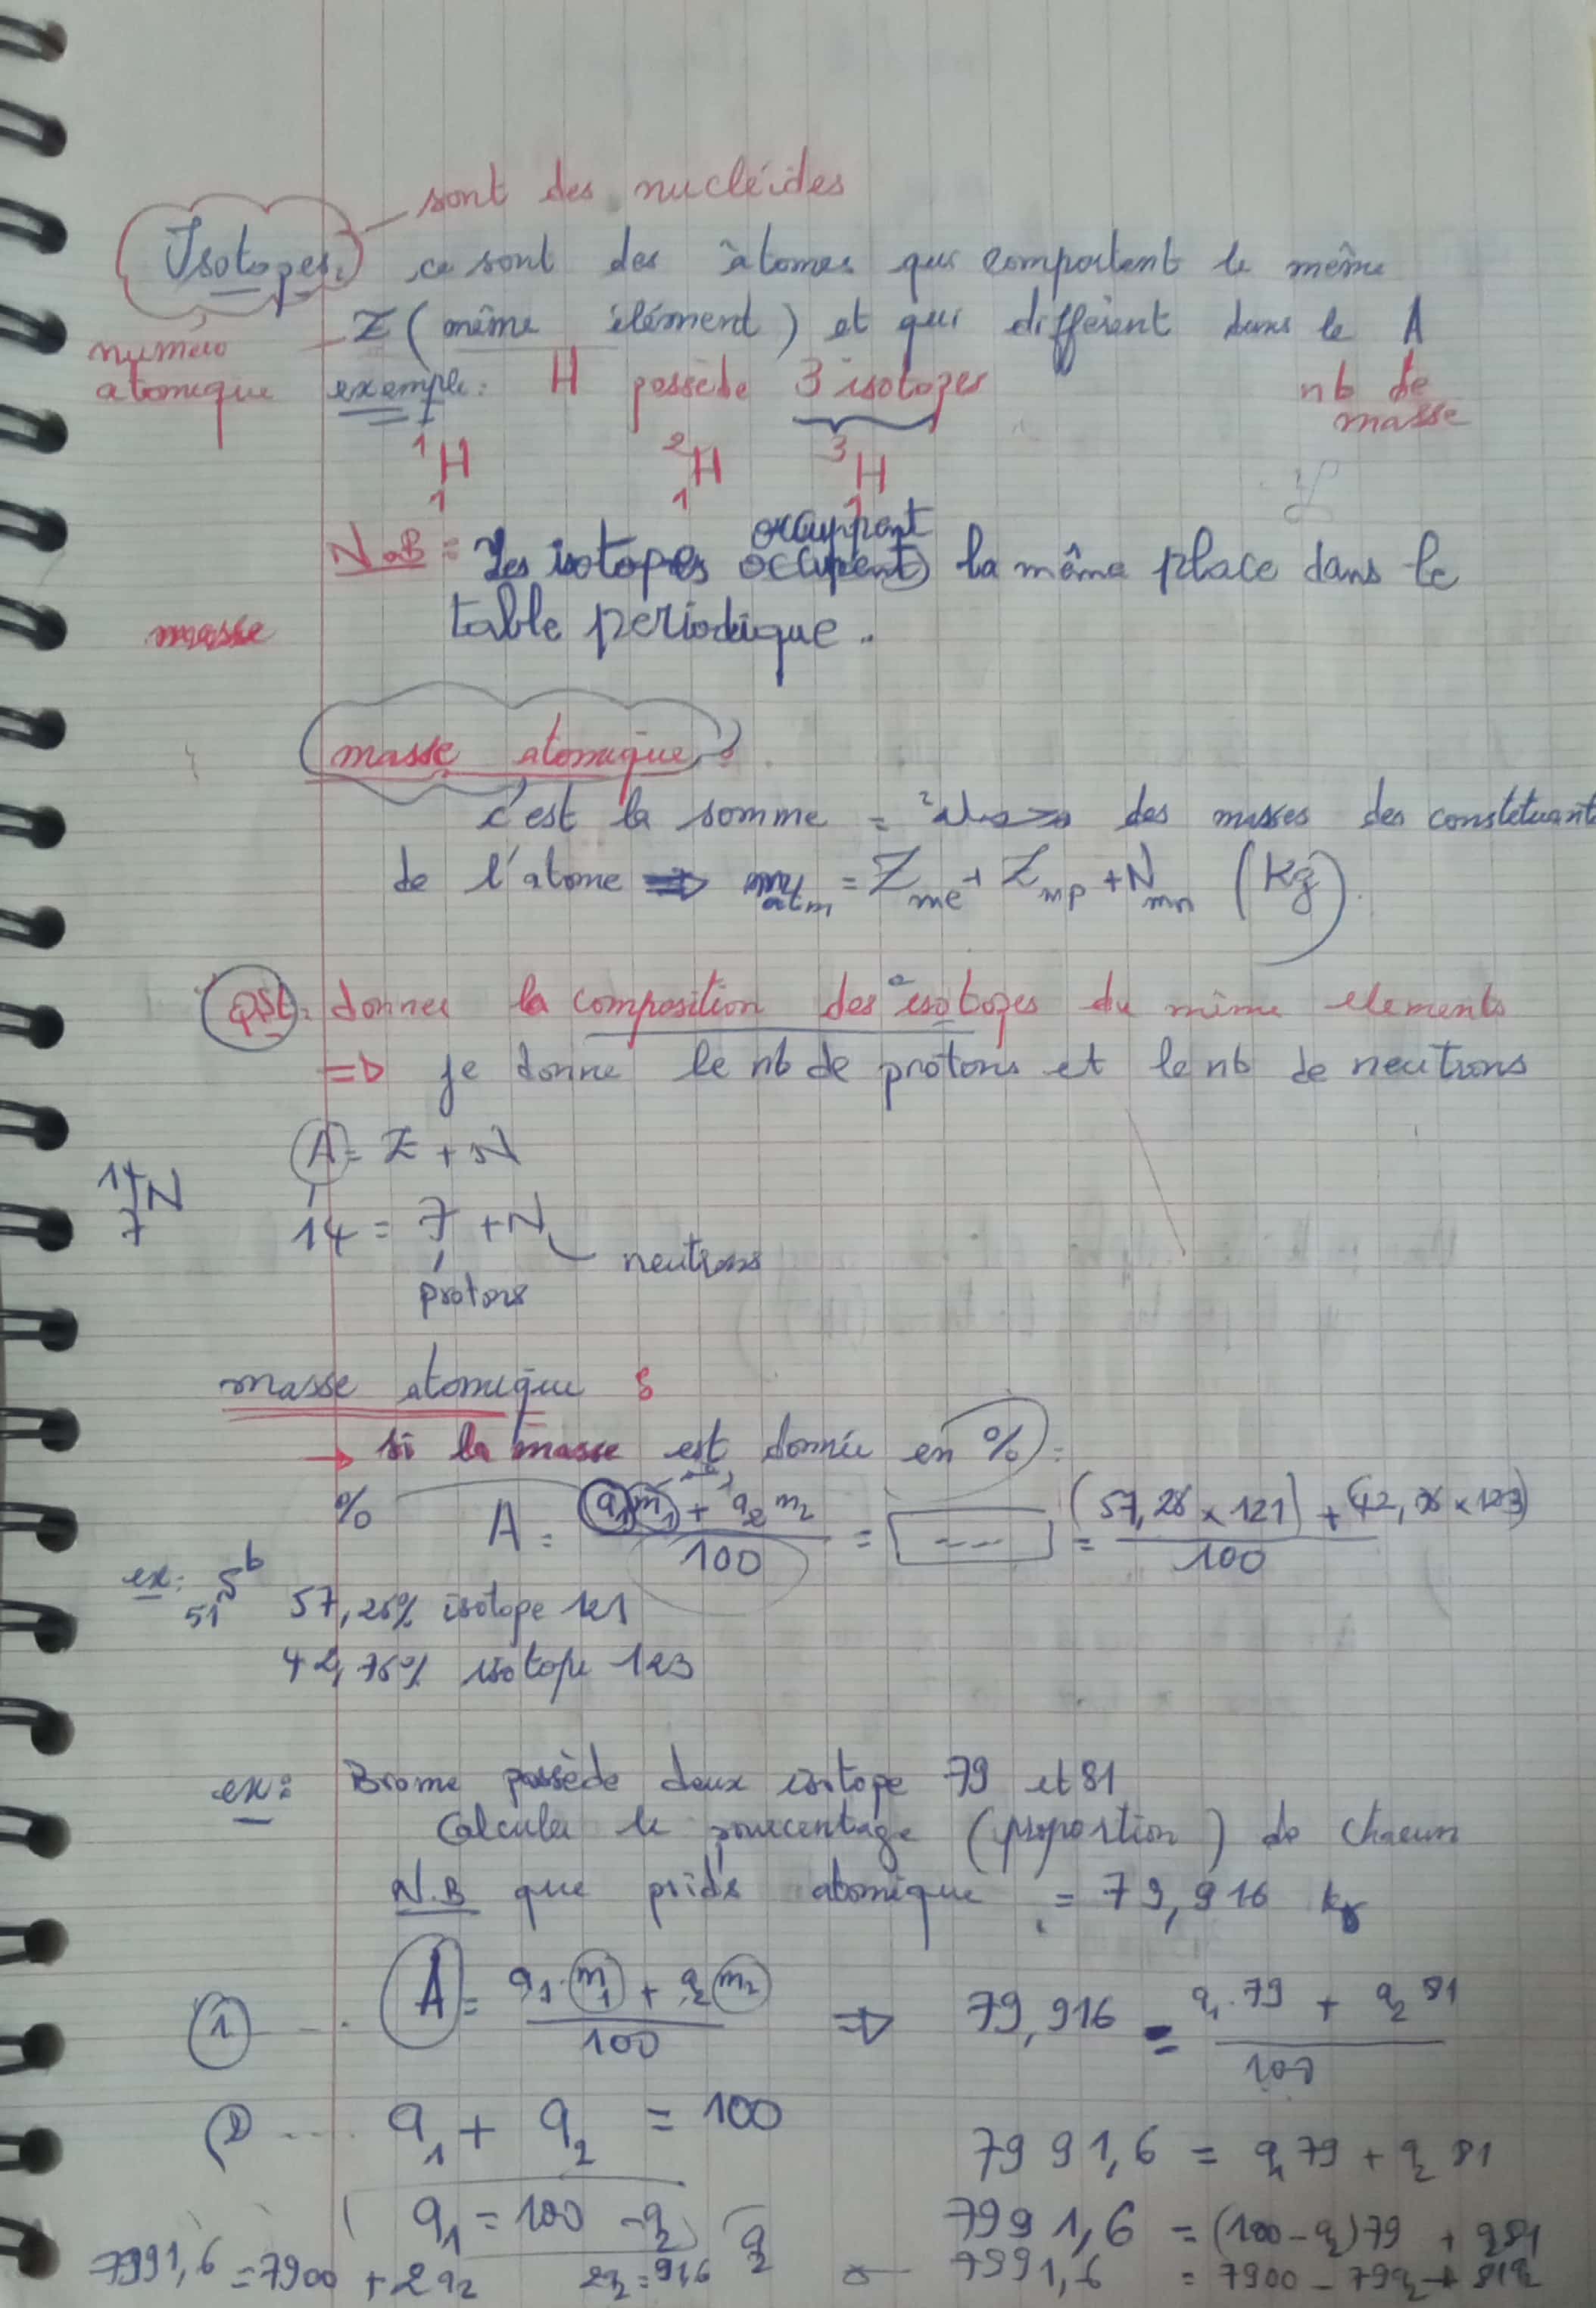 sont des nucléides
Isotopes: ce sont des atomes qui comportent le même
Z (même élément) et qui diffèrent dans le A
numéro atomique
nb de masse
exemple: H possède 3 isotopes
¹₁H ²₁H ³₁H
occuppent
N.B = Les isotopes occupent la même place dans le
table periodique.
masse
masse atomique :
c'est la somme = des masses des constituant
de l'atome ⇒ m atm = Z me + Z mp + N mn (Kg)
QSt: donner la composition des isotopes du même elements
⇒ je donne le nb de protons et le nb de neutrons
A = Z + N
¹⁴₇N
14 = 7 + N
neutrons
protons
masse atomique :
→ si la masse est donnée en % :
% A = (q₁m₁ + q₂m₂)/100 = [---] = ((57,25 × 121) + (42,75 × 123))/100
ex: ₅₁Sb
57,25% isotope 121
42,75% isotope 123
ex: Brome possède deux isotope 79 et 81
Calculer le pourcentage (proportion) de chacun
N.B que poids atomique = 79,916
① ---- A = (q₁.m₁ + q₂m₂)/100 ⇒ 79,916 = (q₁.79 + q₂81)/100
② ---- q₁ + q₂ = 100
7991,6 = q₁79 + q₂81
q₁ = 100 - q₂
7991,6 = (100 - q₂)79 + q₂81
7991,6 = 7900 - 79q₂ + 81q₂
7991,6 = 7900 + 2q₂
2q₂ = 91,6
q₂